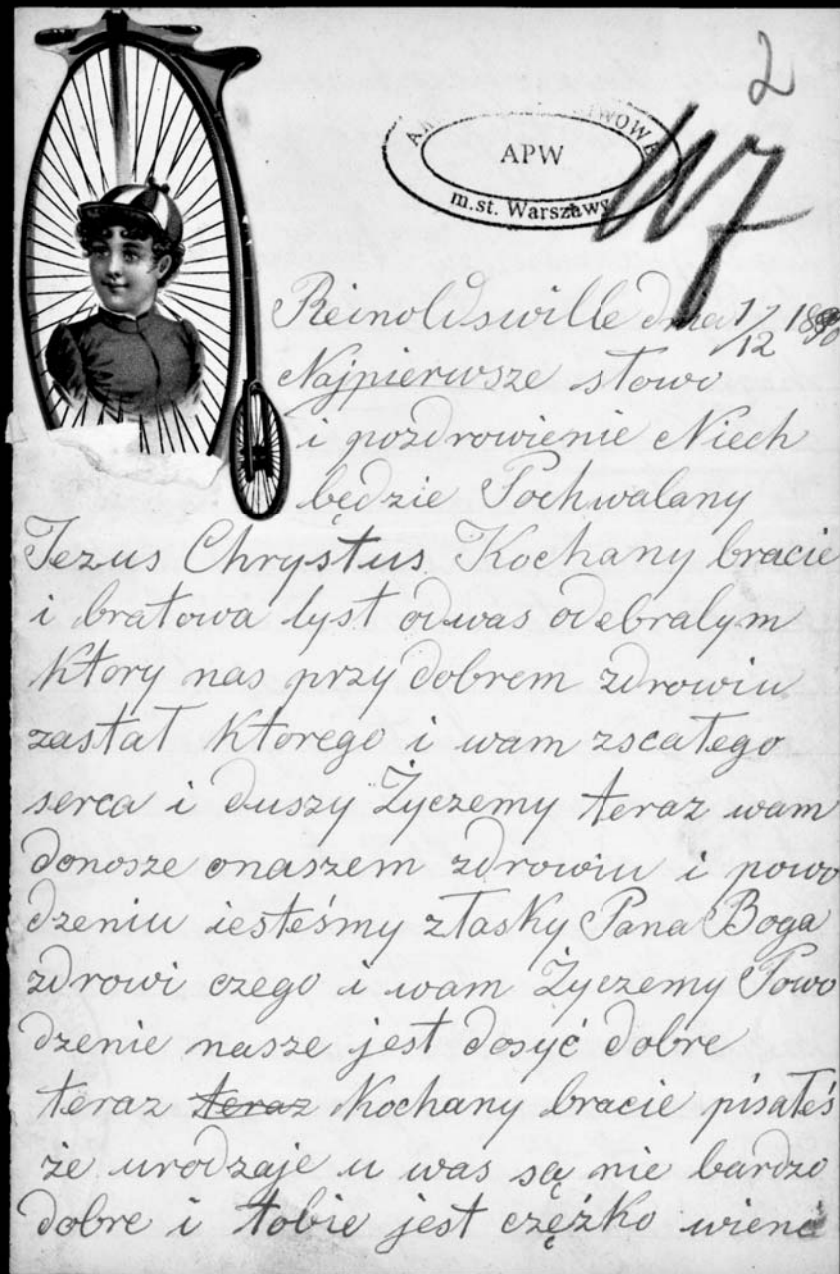 2
APW
m.st. Warszawy
Reinoldswille dnia 1/12 1890
Najpierwsze słowo
i pozdrowienie Niech
będzie Pochwalany
Jezus Chrystus Kochany bracie
i bratowa lyst odwas odebralym
Ktory nas przy dobrem zdrowiu
zastał Ktorego i wam zscałego
serca i duszy Życzemy teraz wam
donosze onaszem zdrowiu i powo
dzeniu iesteśmy złasky Pana Boga
zdrowi czego i wam Życzemy Powo
dzenie nasze jest dosyć dobre
teraz teraz Kochany bracie pisałeś
że urodzaje u was są nie bardzo
dobre i tobie jest czężko wienc